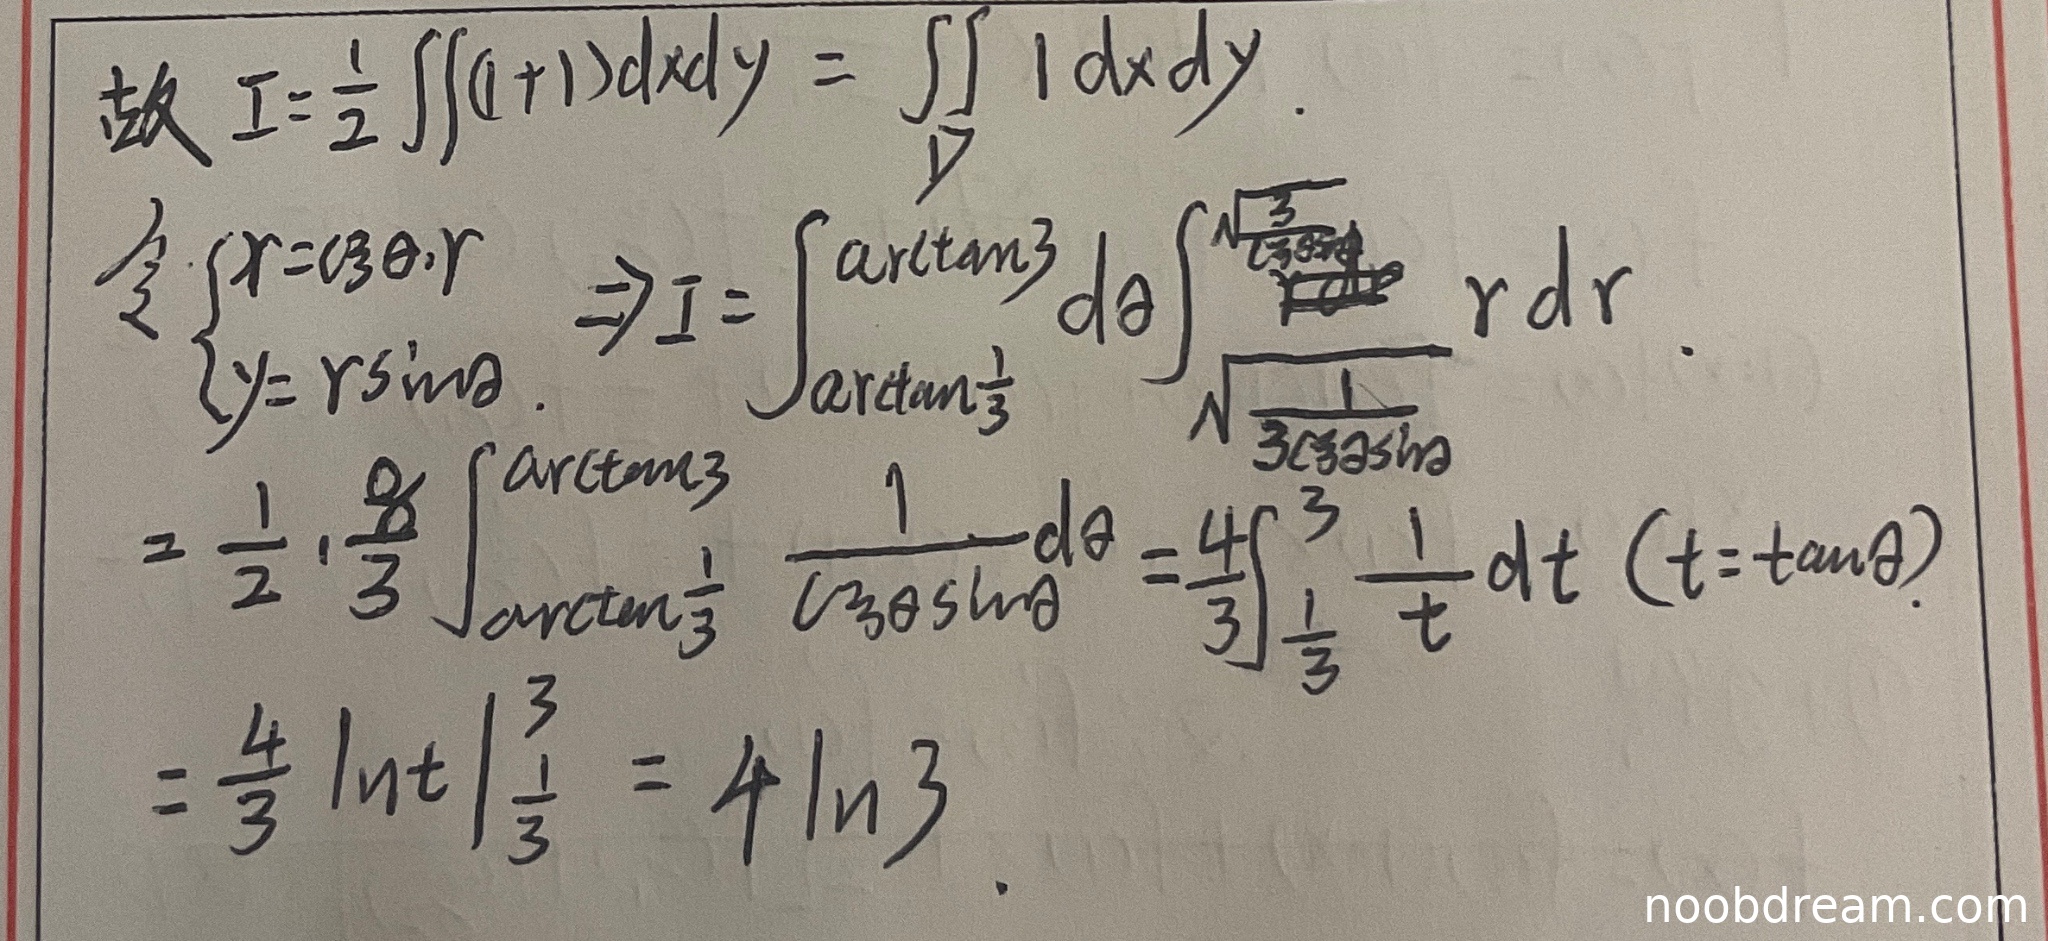 故 I = 1/2 ∬(1+1)dxdy = ∬_D 1 dxdy.
令 { x = cosθ·r
y = rsinθ. ⇒ I = ∫_{arctan 1/3}^{arctan3} dθ ∫_{√(1/(3cosθsinθ))}^{√(3/(cosθsinθ))} r dr.
= 1/2 · 8/3 ∫_{arctan 1/3}^{arctan3} 1/(cosθsinθ) dθ = 4/3 ∫_{1/3}^{3} 1/t dt (t=tanθ).
= 4/3 lnt |_{1/3}^{3} = 4 ln3.
noobdream.com